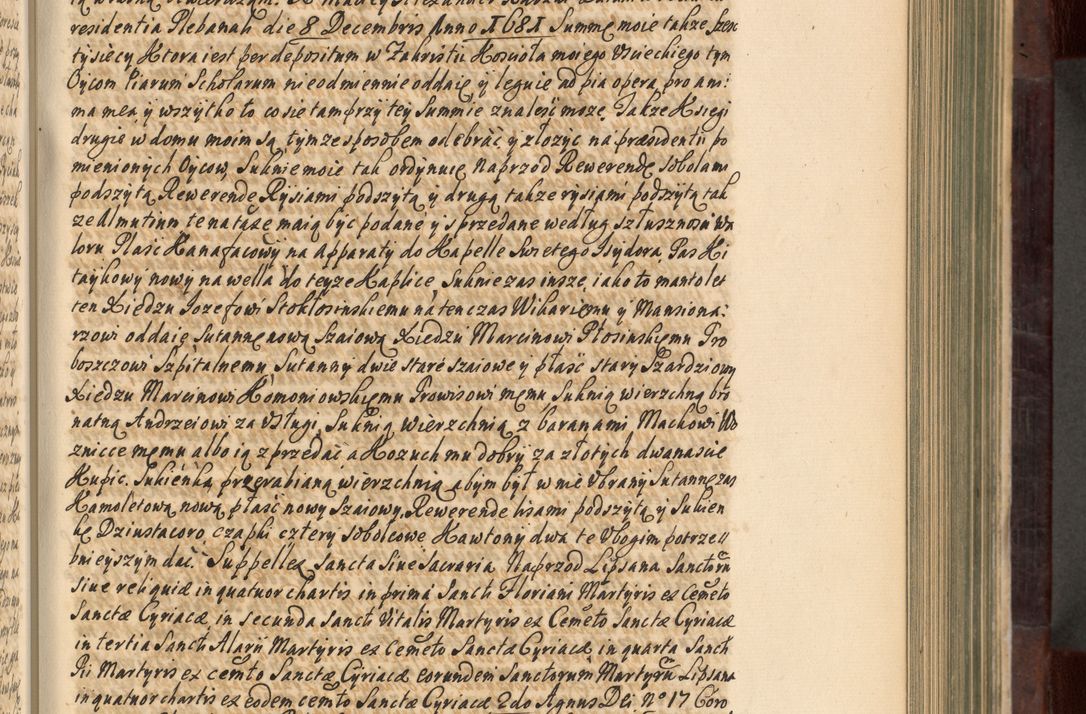 residentia Plebanali die 8 Decembris Anno 1681 Summę moię także szes
tysięcy ktora iest per depositum w Zakristii Kosciola moiego Usieckiego tym
Oycom Piarum Scholarum nieodmiennie oddaię y leguię ad pia opera, pro ani:
ma mea, y wszytko to co się tam przy tey Summie znalesc może, Także Ksiegi
drugie w domu moim są, tymze sposobem odebrać y złożyc na præsidentii po
mienionych Oycow, Suknie moie tak ordynuię Naprzod Rewerendę sobolami
podszytą Rewerendę Rysiami podszytą y drugą także rysiami podszytą tak
ze Almutium te na taxę maią być podane y sprzedane według szłusznosci wa
loru Płasc Kanafacowy na apparaty do Kapelle Swietego Isydora, Pas Ki
taykowy nowy na wella do teyze Kaplice, Suknie zas insze, iako to mantolet
ten Xiedzu Iozefowi Stokłosinskiemu na ten czas Wikariemu y Mansiona:
rzowi oddaię Sutannę nową Szaiową Xiedzu Marcinowi Płosinskiemu Pro
boszczowi Szpitalnemu Sutanny dwie staré szaiowe y płasc stary Szardziowy
Xiedzu Marcinowi Komoniowskiemu Prowisowi memu Suknią wierzchną bro
natną Andrzeiowi za Usługi, Suknią wierzchnią z baranami Mackowi Wo
znicce memu albo ią zprzedać a Kozuch mu dobry za złotych dwanascie
Kupic. Sukienką przerabianą wierzchnią abym był w nię Ubrany Sutannę zas
Kamoletową nową płasc nowy Szaiowy, Rewerendę lisami podszytą y Sukien
kę Dziustacoro, czapki cztery sobolcowe Kawtony dwa te Ubogim potrzeb
bnieyszym dać. Suppellex Sancta Sive Sacraria Naprzod Lipsana Sanctoru
sive reliquiæ in quatuor chartis in prima Sancti Floriani Martyris ex Cemeto
Sanctæ Cyriacæ, in secunda Sancti Vitalis Martyris ex Cemeto Sanctæ Cyriacæ
in tertia Sancti Alarii Martyris ex Cemeto Sanctæ Cyriacæ, in quarta Sancti
Pii Martyris ex cemto Sanctæ Cyriacæ eorundem Sanctorum Martyru Lipsana
in quatuor chartis ex eodem cemto Sanctæ Cyriacæ 2do Agnus Dei No 17 Coro